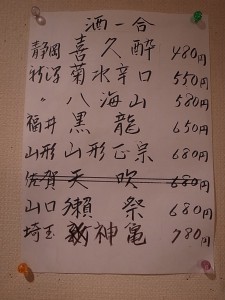 酒一合
静岡 喜久酔 480円
新潟 菊水辛口 550円
〃 八海山 580円
福井 黒龍 650円
山形 山形正宗 680円
佐賀 天吹 680円
山口 獺祭 680円
埼玉 神亀 780円